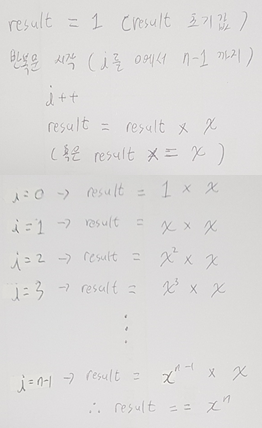 result = 1 (result 초기값)
반복문 시작 (i를 0에서 n-1 까지)
i++
result = result × x
(혹은 result *= x)
i=0 → result = 1 × x
i=1 → result = x × x
i=2 → result = x² × x
i=3 → result = x³ × x
⋮
i=n-1 → result = xⁿ⁻¹ × x
∴ result == xⁿ